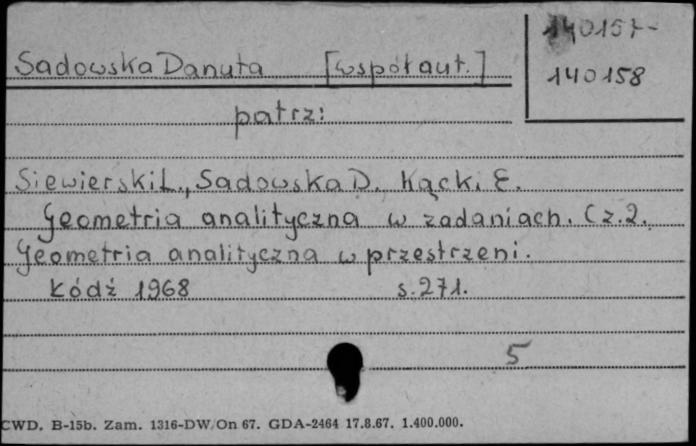 140157-
140158
Sadowska Danuta [współaut.]
patrz:
Siewierski L., Sadowska D. Kącki E.
Geometria analityczna w zadaniach. Cz.2.
Geometria analityczna w przestrzeni.
Łódź 1968 s.271.
5
CWD. B-15b. Zam. 1316-DW/On 67. GDA-2464 17.8.67. 1.400.000.